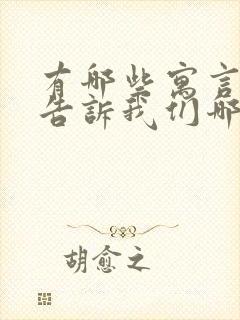 有哪些寓言
告訴我们哪
胡愈之